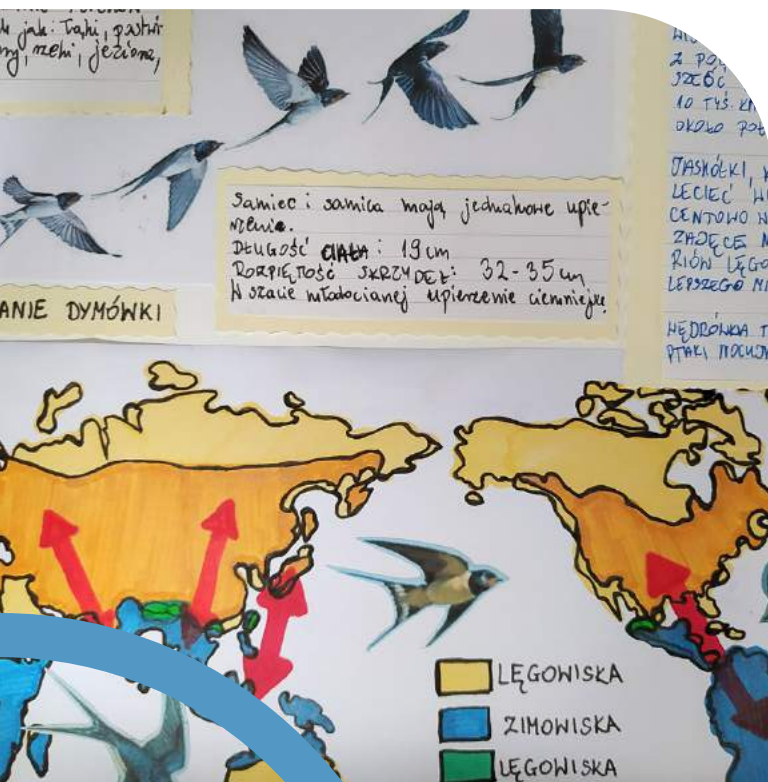 jak: Łąki, pastwi
rzeki, jeziora,
Samiec i samica mają jednakowe upie-
rzenie.
DŁUGOŚĆ CIAŁA: 19 cm
ROZPIĘTOŚĆ SKRZYDEŁ: 32-35 cm
W szacie młodocianej upierzenie ciemniejsze
ANIE DYMÓWKI
Z
SZEŚĆ
10 TYŚ.
OKOŁO
JASKÓŁKI,
LECIEĆ
CENTOWO
ZAJĘCE
RIÓW LĘGO
LEPSZEGO
WĘDRÓWKA
PTAKI
LĘGOWISKA
ZIMOWISKA
LĘGOWISKA